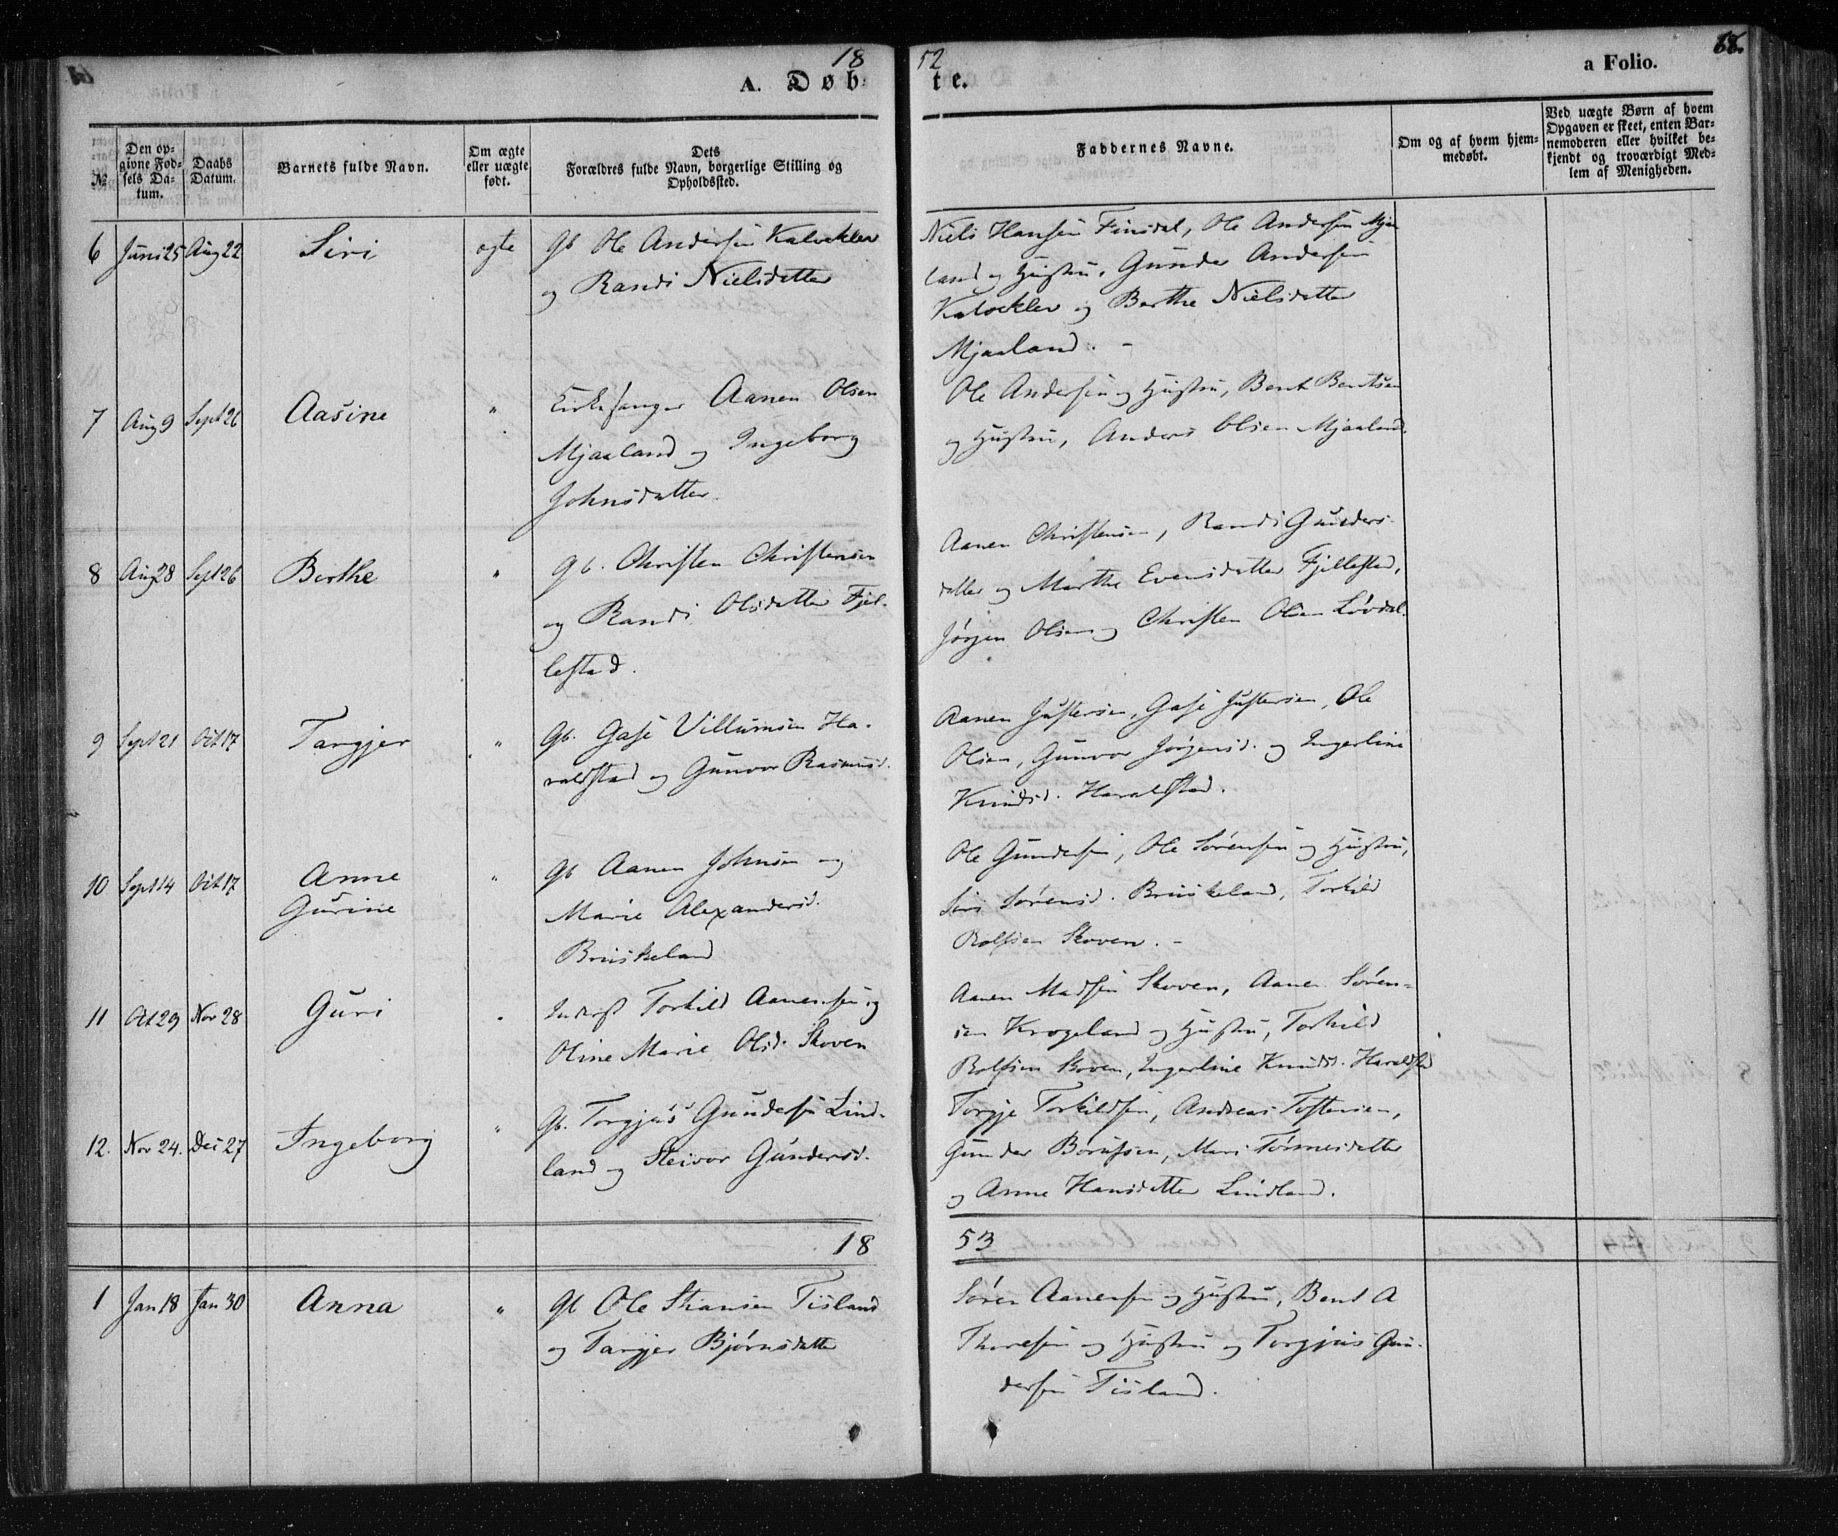 18 52
A. Døb- te.
a Folio.
№
Den op-
givne Fød-
sels Da-
tum.
Daabs
Datum.
Barnets fulde Navn.
Om ægte
eller uægte
født.
Dets
Forældres fulde Navn, borgerlige Stilling og
Opholdssted.
Faddernes Navne.
Om og af hvem hjem-
medøbt.
Ved uægte Børn af hvem
Opgaven er skeet, enten Bar-
nemoderen eller hvilket be-
kjendt og troværdigt Med-
lem af Menigheden.
6 Juni 25 Aug 22 Siri ægte
Gb Ole Andersen Kalvekler
og Randi Nielsdatter
Niels Hansen Finsdal, Ole Andersen Mjaa-
land og Hustru, Gunder Andersen
Kalvekler og Berthe Nielsdatter
Mjaaland. -
7 Aug 9 Sept 26 Aasine "
Kirkesanger Aanen Olsen
Mjaaland og Ingeborg
Johnsdatter.
Ole Andersen og Hustru, Bent Bentsen
og Hustru, Anders Olsen Mjaaland.
8 Aug 28 Sept 26 Berthe "
Gb. Christen Christensen
og Randi Olsdatter Fjel-
lestad.
Aanen Christensen, Randi Gunders-
datter og Marthe Evensdatter Fjellestad,
Jørgen Olsen og Christen Olsen Løvdal.
9 Sept 21 Oct 17 Tangjer "
Gb. Gase Villumsen Ha-
raldstad og Gunvor Rasmusd.
Aanen Justersen, Gase Justersen, Ole
Olsen, Gunvor Jørgensd. og Ingerline
Knudsd. Haraldstad.
10 Sept 14 Oct 17 Anne
Gurine "
Gb Aanen Johnsen og
Marie Alexandersd.
Bruskeland
Ole Gundersen, Ole Sørensen og Hustru,
Siri Sørensd. Bruskeland, Torkild
Rolfsen Skoven. -
11 Oct 29 Nov 28 Guri "
Inderst Torkild Aanensen og
Oline Marie Olsd. Skoven
Aanen Madsen Skoven, Aanen Søren-
sen Krogeland og Hustru, Torkild
Rolfsen Skoven, Ingerline Knudsd. Haraldstad
12. Nov 24. Dec 27 Ingeborg "
Gb. Torgjus Gundersen Lind-
land og Steivor Gundersd.
Torgje Torkildsen, Andreas Toftensen,
Gunder Borufsen, Mari Tørresdatter
og Anne Hansdatter Lindland.
18 53
1 Jan 18 Jan 30 Anna "
Gb Ole Stiansen Tisland
og Tangjer Bjørnsdatter
Søren Aanensen og Hustru, Bent A
Thoresen og Hustru og Torgjus Gun-
dersen Tisland.